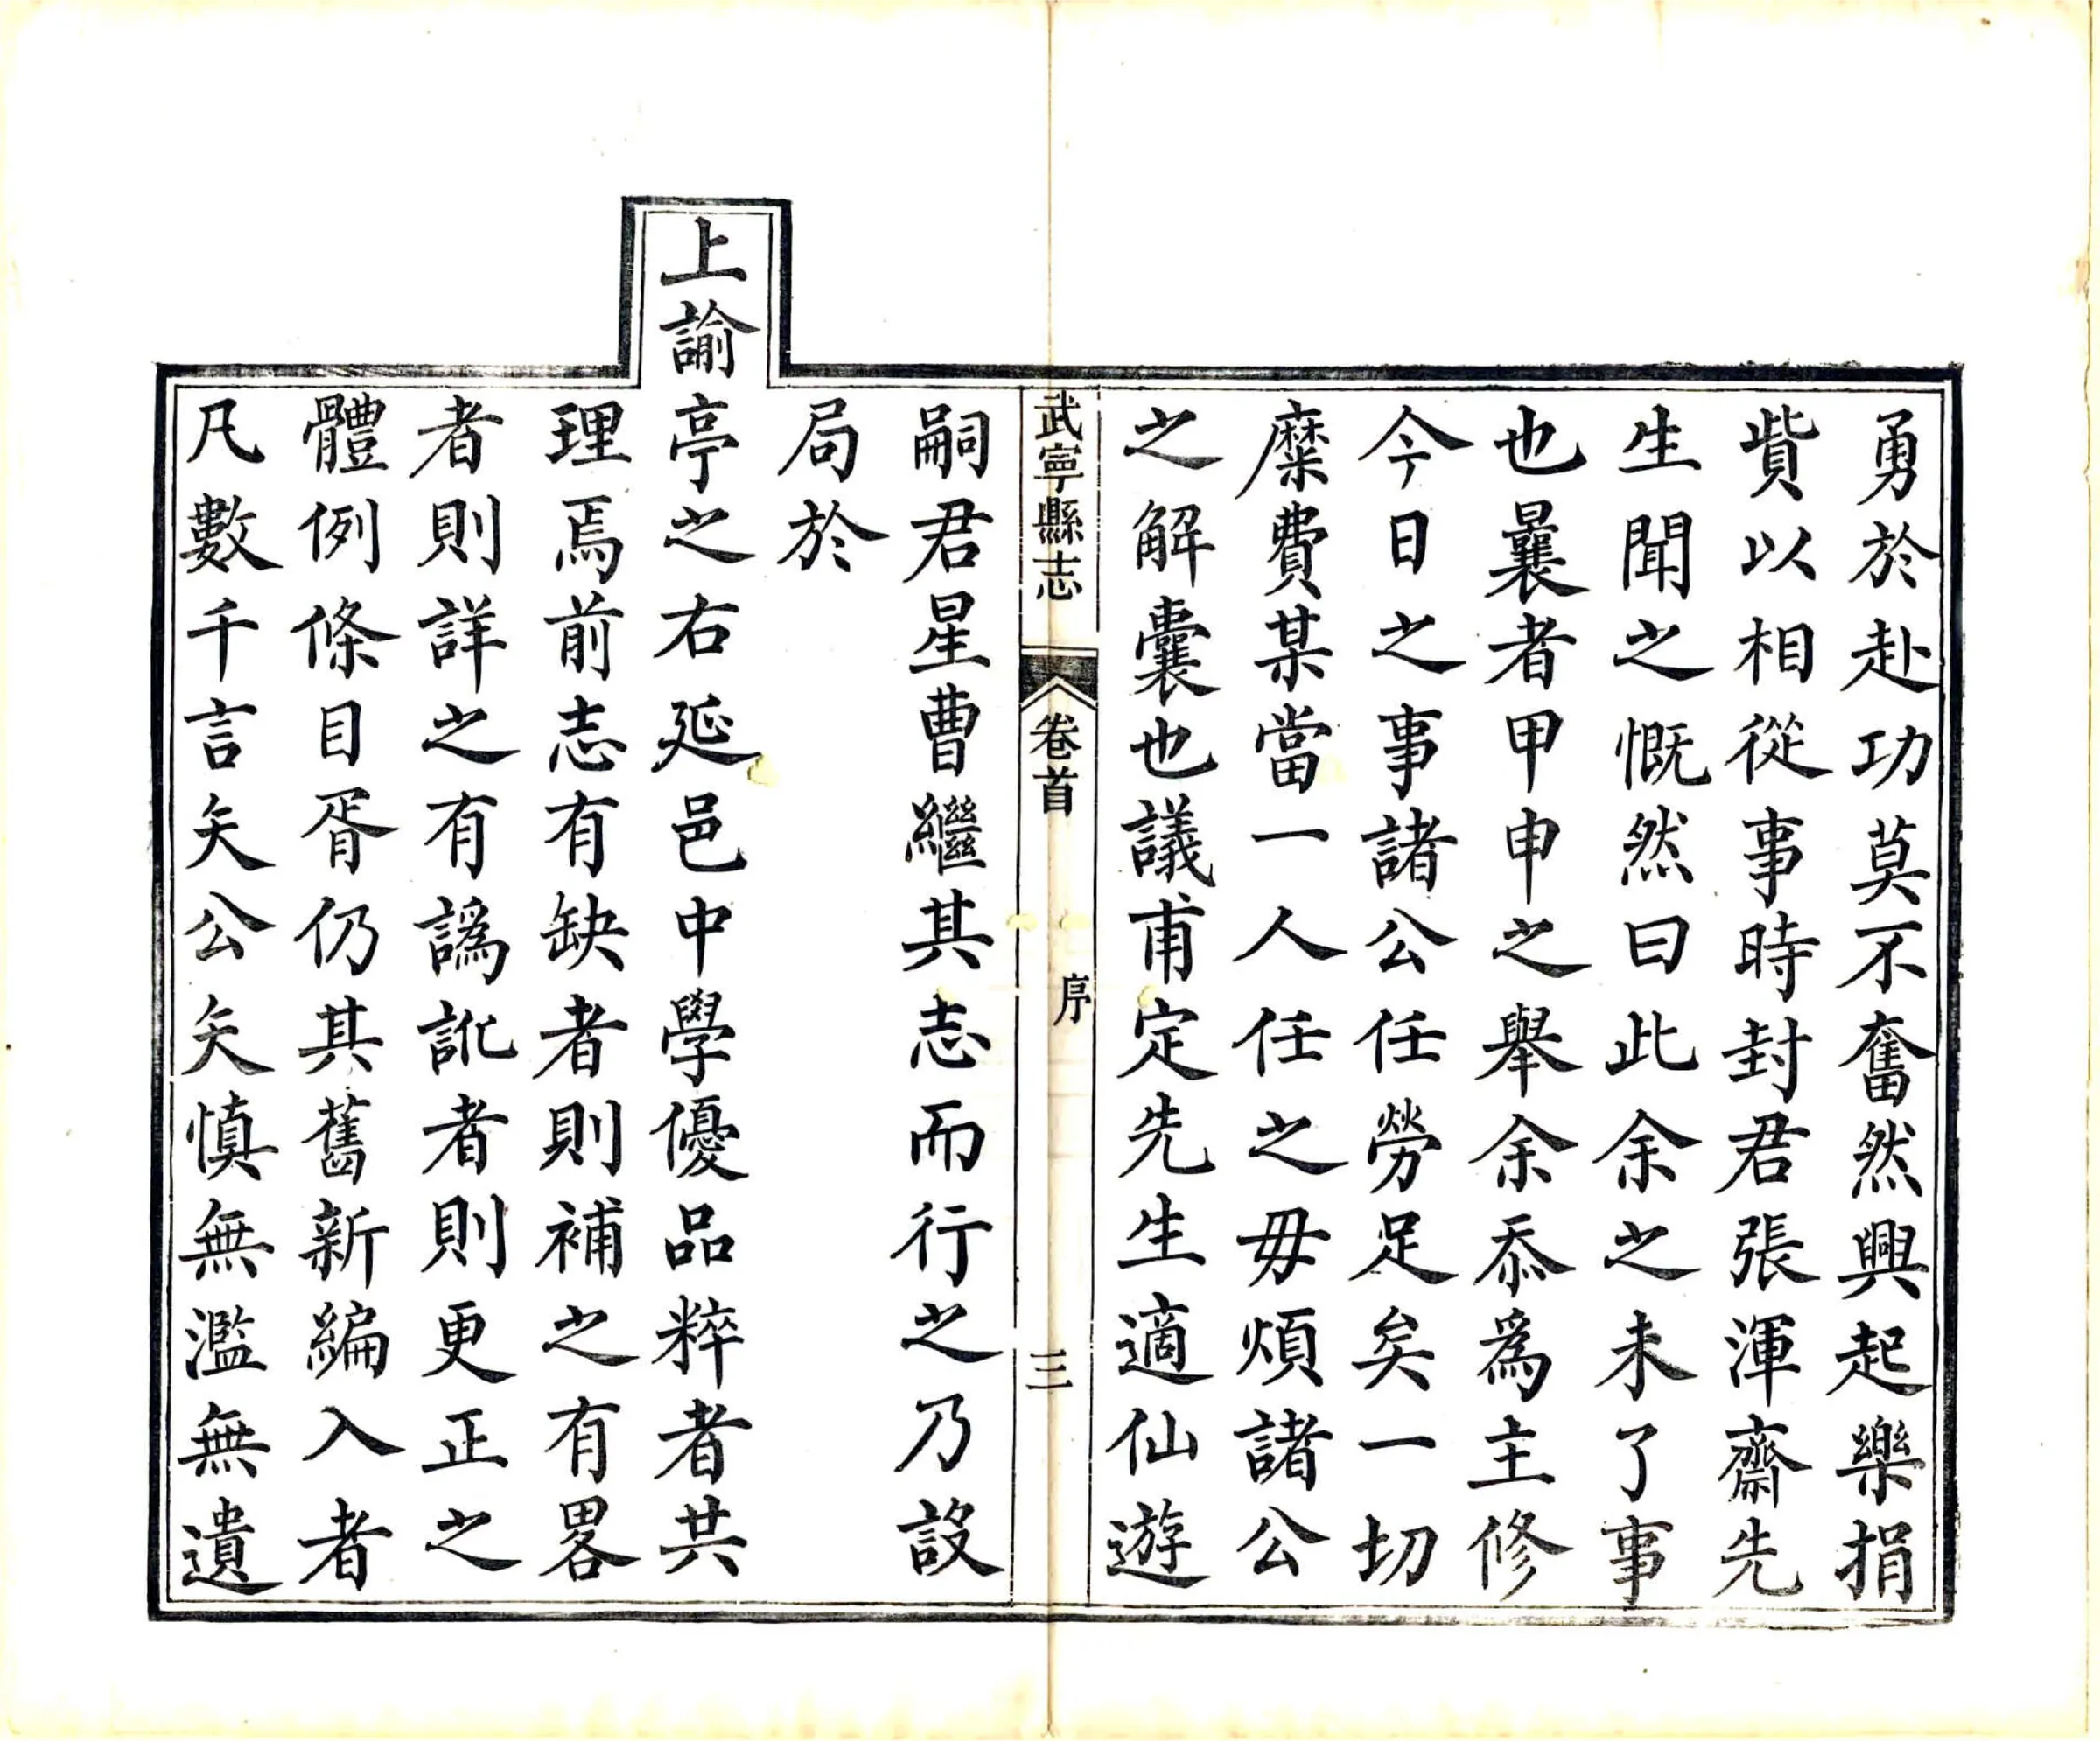 勇於赴功莫不奮然興起樂捐
貲以相從事時封君張渾齋先
生聞之慨然曰此余之未了事
也曩者甲申之舉余忝為主修
今日之事諸公任勞足矣一切
糜費某當一人任之毋煩諸公
之解囊也議甫定先生適仙遊
武寧縣志 卷首 序 三
嗣君星曹繼其志而行之乃設
局於
上諭亭之右延邑中學優品粹者共
理焉前志有缺者則補之有畧
者則詳之有譌訛者則更正之
體例條目胥仍其舊新編入者
凡數千言矢公矢慎無濫無遺